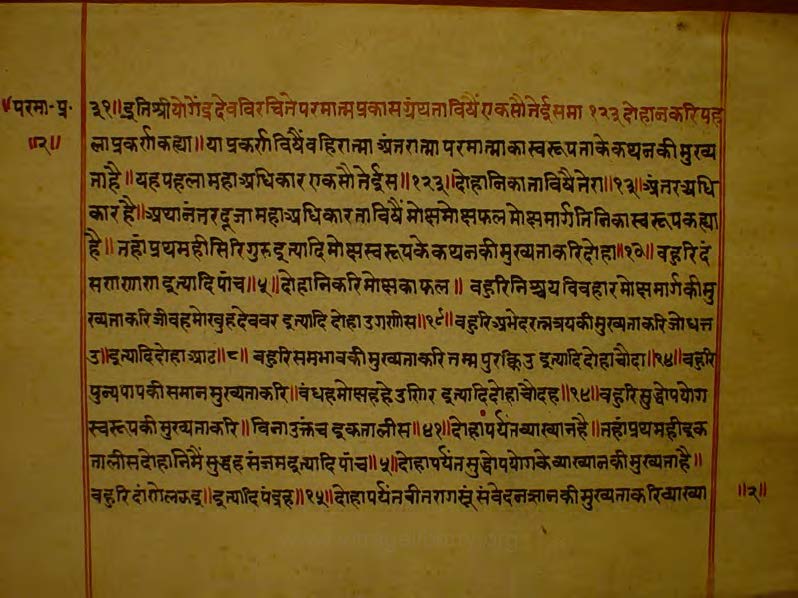 परमा-प्र
॥२॥
३१॥इतिश्रीयोगेंद्रदेवविरचितेपरमात्मप्रकासग्रंथताविषैंएकसौतेईसमा १२३ दोहानकरिपह
लाप्रकर्णकह्या॥याप्रकर्णविषैंवहिरात्मा अंतरात्मा परमात्माकास्वरूपताकेकथनकीमुख्य
ताहै॥यहपहलामहाअधिकारएकसौतेईस॥१२३॥दोहानिकाताविषैतेरा॥१३॥अंतरअधि
कारहै॥अथानंतरदूजामहाअधिकारताविषैंमोक्षमोक्षफलमोक्षमार्गतिनिकास्वरूपकह्या
है॥तहांप्रथमहीसिरिगुरुइत्यादिमोक्षस्वरूपकेकथनकीमुख्यताकरिदोहा॥१०॥ वहुरिदं
सणणाणइत्यादिपांच॥५॥दोहानिकरिमोक्षकाफल॥ वहुरिनिश्चयविवहारमोक्षमार्गकीमु
ख्यताकरिजीवहमोखुहदेववर इत्यादि दोहाउगणीस॥१९॥वहुरिअभेदरत्नत्रयकीमुख्यताकरिजोभत्त
उ॥इत्यादिदोहाआठ॥८॥ वहुरिसमभावकीमुख्यताकरि इत्यादिदोहाचौदा॥१४॥वहुरि
पुन्यपापकीसमानमुख्यताकरि॥वंधहमोक्षहहेउणिउ इत्यादिदोहाचौदह॥१४॥वहुरिसुद्धोपयोग
स्वरूपकीमुख्यताकरि॥विनाउक्तंचइकतालीस॥४१॥दोहापर्यंतव्याख्यानहै॥तहांप्रथमहीइक
तालीसदोहानिमैंसुद्धहसंजमइत्यादिपांच॥५॥दोहापर्यंतसुद्धोपयोगकेव्याख्यानकीमुख्यताहै॥
वहुरि॥इत्यादिपंद्रह॥१५॥दोहापर्यंतवीतरागसंवेदनज्ञानकीमुख्यताकरिव्याख्या
॥२॥